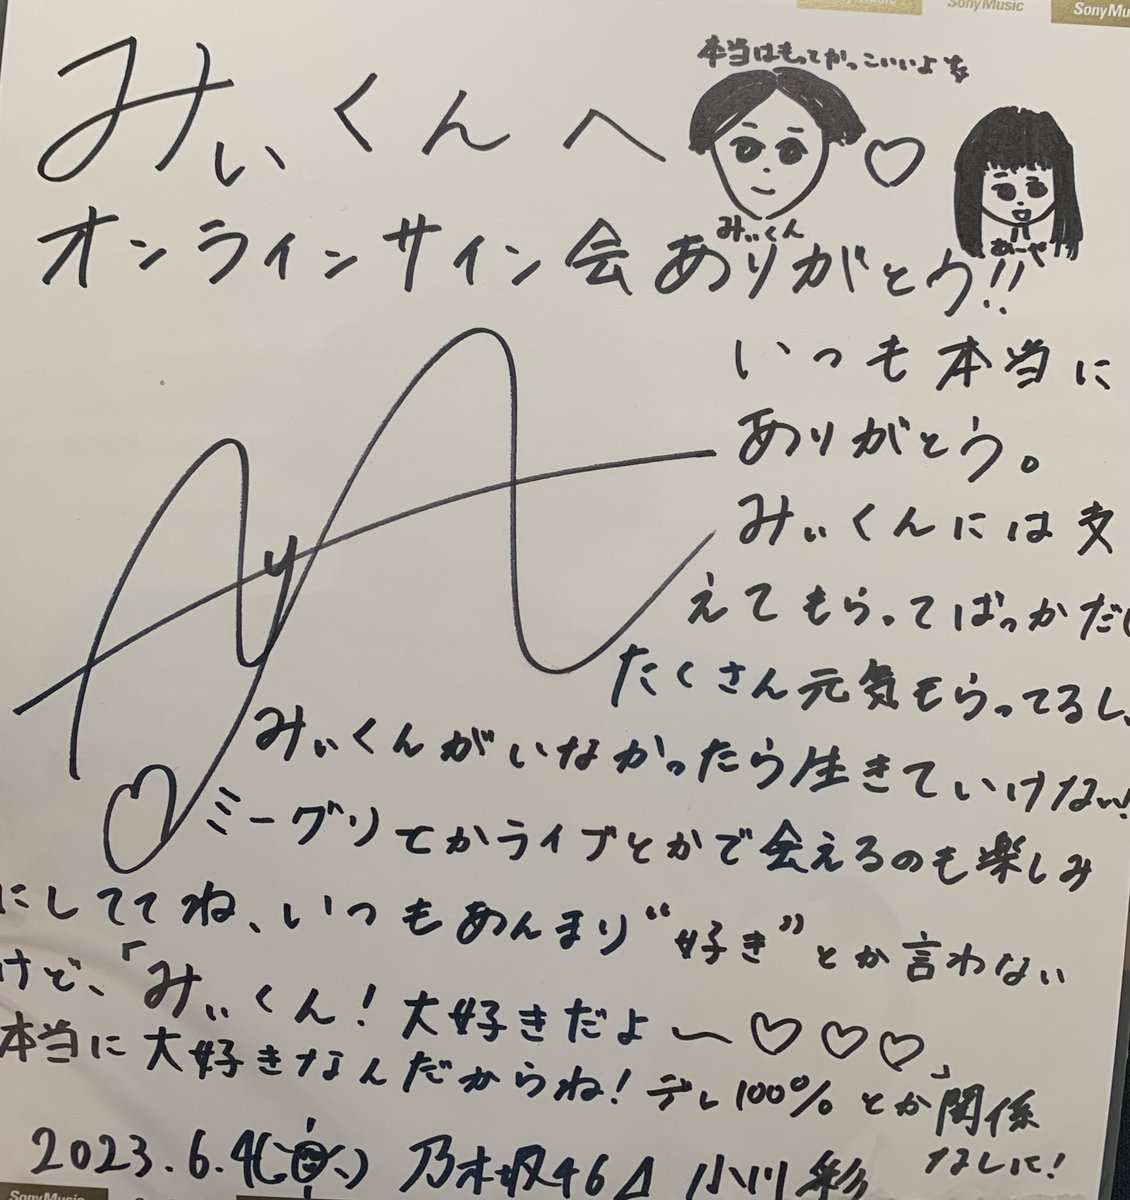 SonyMusic
SonyMu
本当はもってかっこいいよ
みぃくんへ
みぃくん
あーや
オンラインサイン会ありがとう!!
いつも本当に
ありがとう。
みぃくんには支
えてもらってばっかだし
たくさん元気もらってるし、
みぃくんがいなかったら生きていけない!
ミーグリてかライブとかで会えるのも楽しみ
にしててね、いつもあんまり“好き”とか言わない
けど、「みぃくん!大好きだよ〜♡♡♡」
本当に大好きなんだからね!デレ100%とか関係
なしに!
AyA
2023.6.4 乃木坂46 小川彩
SonyMusic